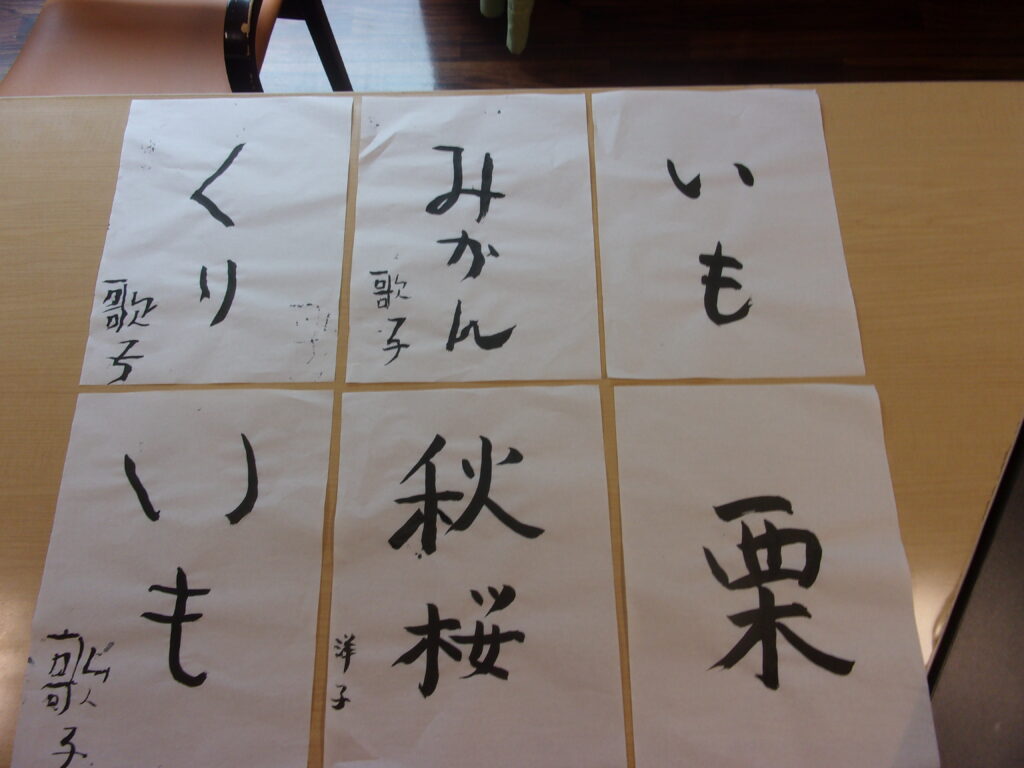 くり
歌子
みかん
歌子
いも
いも
歌子
秋桜
洋子
栗